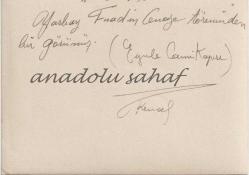 Yarbay Fuadın Cenaze töreninden
bir görünüş. (Eyüp Camii Kapısı)
anadolu sahaf